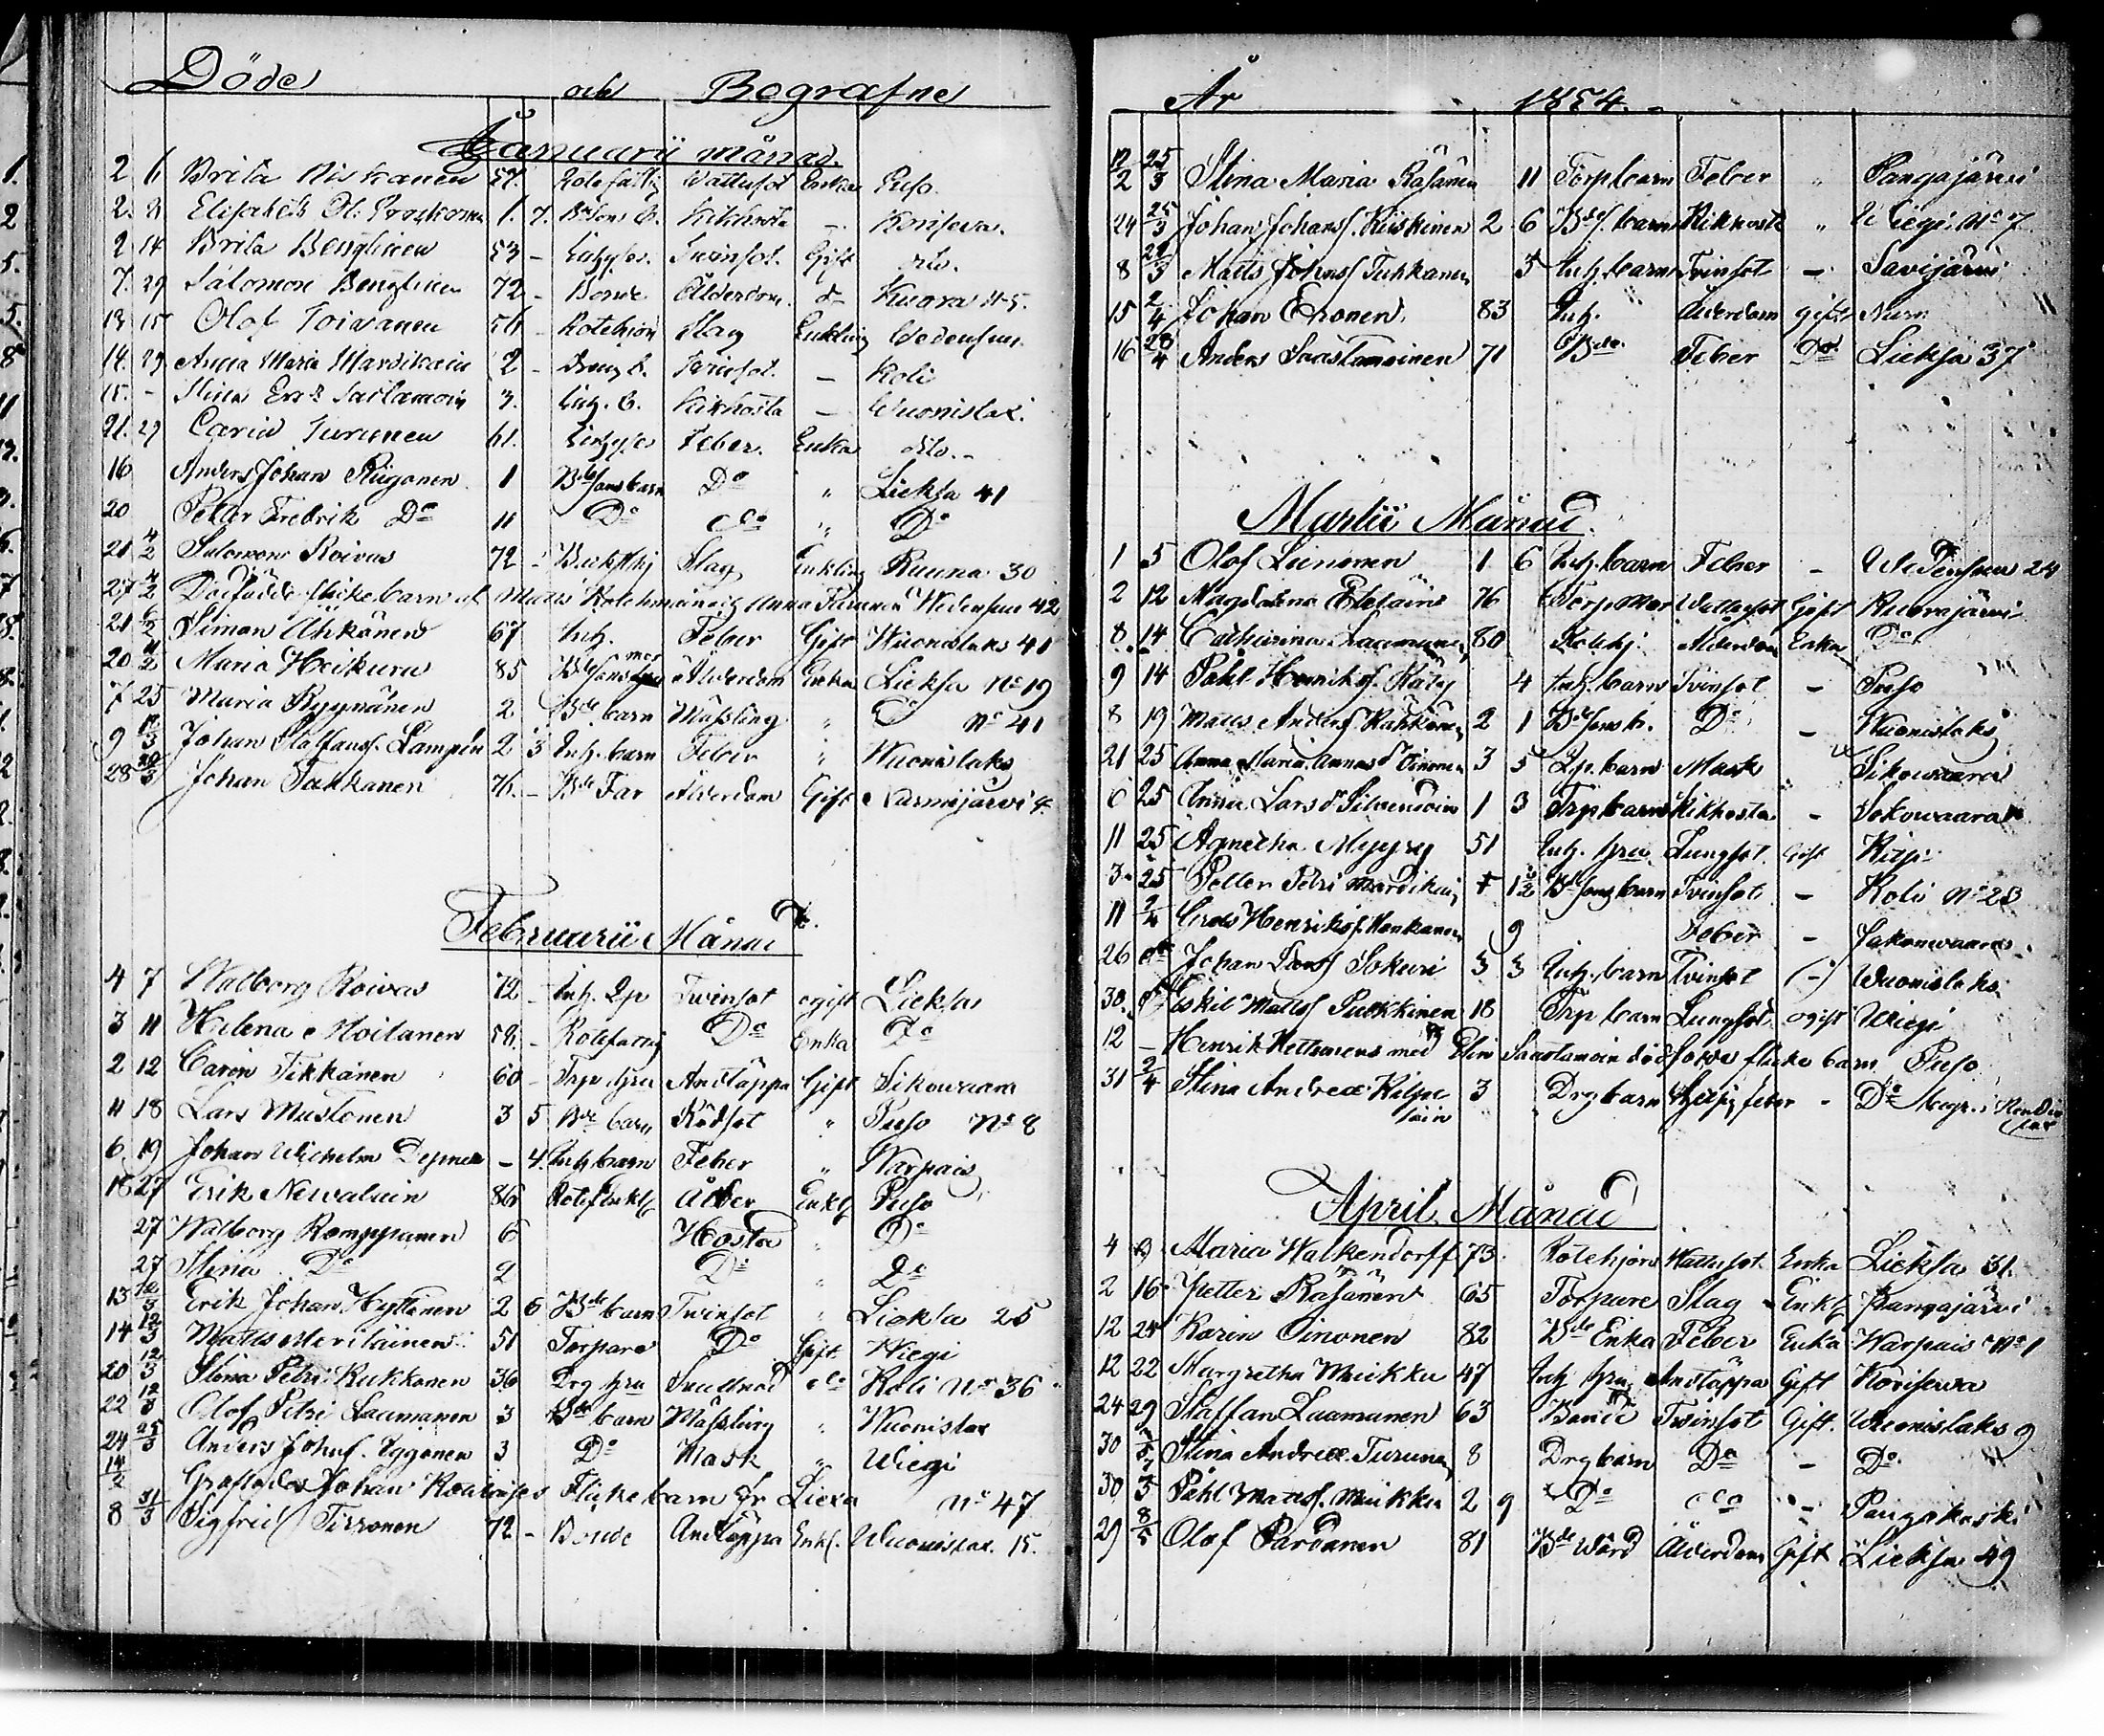 Döde och Begrafne
Januarii månad.
2 6 Brita Kiskanen 57. Rotefattig Wattusot Enka Puso.
2. 8 Elisabeth Ol. 1. 7. Kikhosta – Konseva.
2 14 Brita Bengtinen 53 – Lungsot. Gift dito.
7. 29 Salomon Bengtinen 72 – Bonde Ålderdom. d:o Kuora N:5.
13 15 Olof Toiwanen 56 – Rotehjon Slag Enkling Wedensuu.
14. 29 Anna Maria Mardikain 2 – Dreng b. Twinsot. – Koli
15. – Stina Saastamoin 3. Inh. b. Kikhosta – Wuonislax.
21. 29 Carin Turunen 61. Inhyses Feber. Enka dito. –
16 Anders Johan Piigonen 1 B:de sons barn D:o " Lieksa 41
20 Petter Fredrik D:o 11 D:o d:o " D:o
21 4/2 Salomon Roivas 72 – Slag Enkling Ruuna 30
27 4/2 Dödfödde flickebarn af Matts Anna Wedensuu 42
21 6/2 Simon Uhkänen 67 Inh. Feber Gift Wuonislaks 41
20 11/2 Maria Heikura 85 B:de sons mor Ålderdom Enka Lieksa N:o 19
7 25 Maria Ryynänen 2 B:de barn Mässling " D:o N:o 41
9 12/3 Johan Staffans. Lampin 2 3 Inh. barn Feber " Wuonislaks
28 20/3 Johan Takkanen 76. – B:de Far Ålderdom Gift Nurmijärvi 4.
Februarii Månad.
4 7 Walborg Roivas 72 – Inh. Qp Twinsot ogift Lieksa
3 11 Helena Moilanen 58. – Rotefattig D:o Enka D:o
2 12 Carin Tikkanen 60 – Trp. hru Andtäppa Gift Sikowaara
11 18 Lars Mustonen 3 5 B:de barn Rödsot " Puso N:o 8
6. 19 Johan Wilhelm – 4. Inh barn Feber " Warpais
18 27 Erik Newalain 86 Ålder Enkl. Puso
27 Walborg Romppanen 6 Hosta " D:o
27 Stina D:o 2 D:o " D:o
13 12/3 Erik Johan Hyttinen 2 6 B:de barn Twinsot " Lieksa 25
14 12/3 Matts Meriläinen 51 Torpare D:o Gift Wiegi
20 12/3 Stina Petri Kukkonen 36 Drg hru d:o Koli N:o 36
22 12/3 Olof Petri Laamanen 3 B:de barn Mässling " Wuonislax
24 25/3 Anders Johns. Eggonen 3 D:o Mask " Wiegi
14/2 Johan Flickebarn fr. Liexa N:o 47
8 31/3 Sigfrid Tirronen 72 – Bonde Andtäppa Enkl. Wuonislax. 15.
År 1854.
12/2 25/3 Stina Maria Räsänen 11 Torpbarn Feber " Pangajärvi
24 25/3 Johan Johans. Kiiskinen 2 6 B:des. barn Kikhosta " Wiegi N:o 7
8 29/3 Matts Johans. Tuhkanen 3 Inh. barn Tvinsot – Savijärvi
15 2/4 Johan Eronen. 83 Inh. Ålderdom gift Nurm
16 28/4 Anders Saastamoinen 71 B:de Feber D:o Lieksa 37
Martii Månad.
1 5 Olof Leinonen 1 6 Inh. barn Feber – Wedensuu 24
2 12 Magdalena Eteläin 76 Torp mor Wattusot Gift Kuorajärvi
8. 14 Catharina Laamanen 80 Rotehj. Ålderdom Enka D:o
9 14 Påhl Henriks. 4 Inh. barn Tvinsot – Puso
8 19 Matts Anders. Kähkönen 2 1 B:de sons b. D:o – Wuonislaks
21 25 Anna Maria Annas d:r Oinonen 3 5 Qp. barn Mask " Sikowaara
6 25 Anna Lars d:r Silvendoin 1 3 Trp barn Kikhosta – Sokowaara
11 25 Agnetha Myyry 51 Inh. hru Lungsot. Gift Kitsi
3 25 Petter Petri Mardikain 1/2 B:de sons barn Tvinsot – Koli N:o 23
11 2/4 Henriks. Honkanen 9 Feber – Jakonwaara
26 d:o Johan Lars. Sokuri 3 3 Inh. barn Tvinsot (–) Wuonislaks
30. d:o Eskil Matts. Puikkinen 18 Trp barn Lungsot ogift Wiegi
12 – Henrik Hettunens med Elin Saastamoin dödfödda flicke barn Puso
31 2/4 Stina Andreæ Kilpeläin 3 Drg barn feber – D:o
April Månad
4 9 Maria Walkendorff 73. Rotehjon Wattusot Enka Lieksa 31.
2 16 Petter Räsänen 65 Torpare Slag Enkl. Pangajärvi
12 25 Karin Oinonen 82 B:de Enka Feber Enka Warpais N:o 1
12 22 Margretha Muikku 47 Inh hru Andtäppa Gift Koriserva
24 29 Staffan Laamanen 63 Bonde Twinsot Gift. Wuonislaks 9
30 7/5 Stina Andreæ Turunen 8 Drg barn D:o – D:o
30 7/5 Påhl Matts. Muikku 2 9 D:o d:o – Pangakoski
29 8/5 Olof Pardanen 81 B:de Wård Ålderdom Gift Lieksa 49